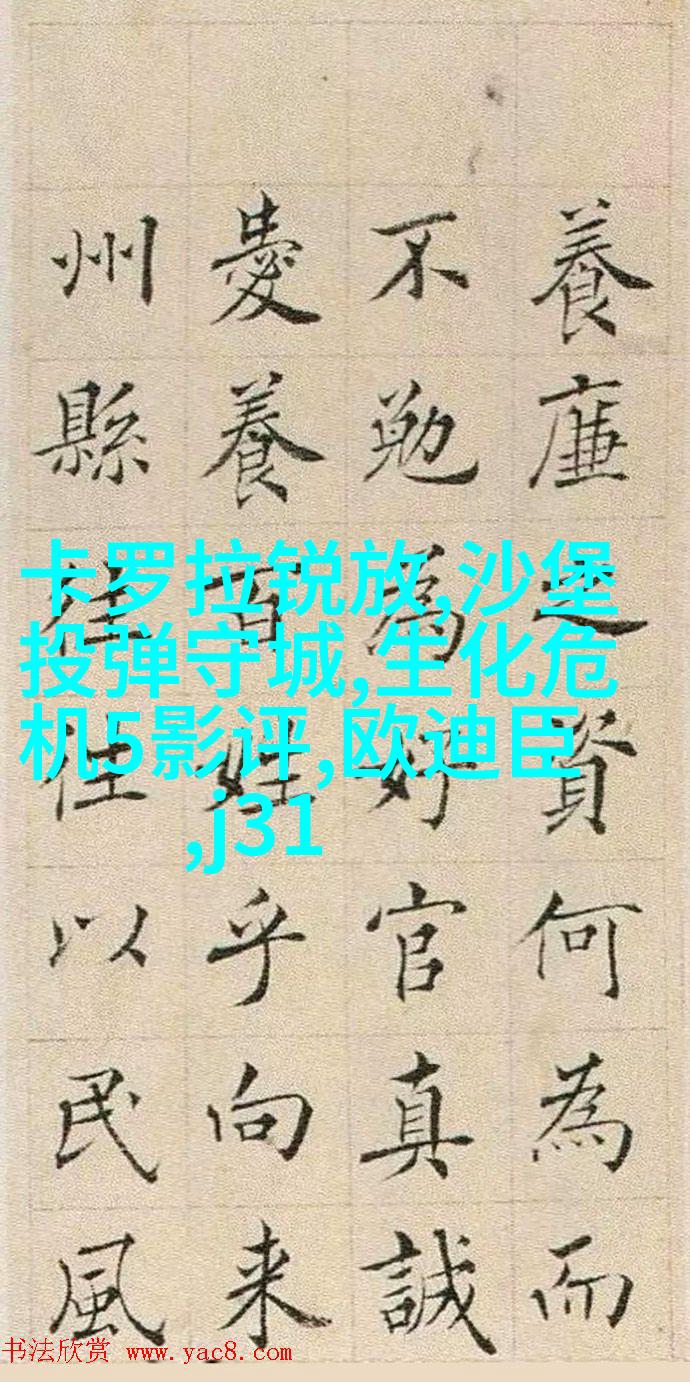 養廉之資何為而
不勉為好官真誠
愛養百姓乎向来
州縣往往以民風
卡罗拉锐放,沙堡
投弹守城,生化危
机5影评,欧迪臣
,j31
书法欣赏 www.yac8.com